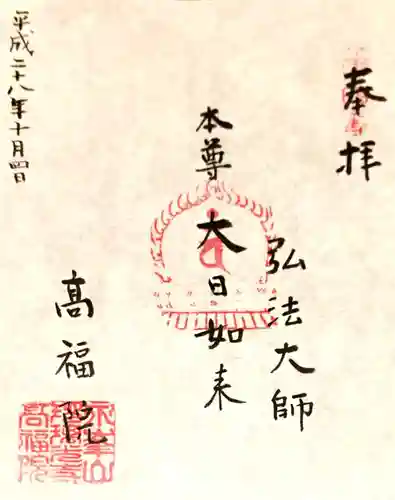 奉拝
弘法大師
本尊
大日如来
高福院
平成二十八年十月四日
高福院